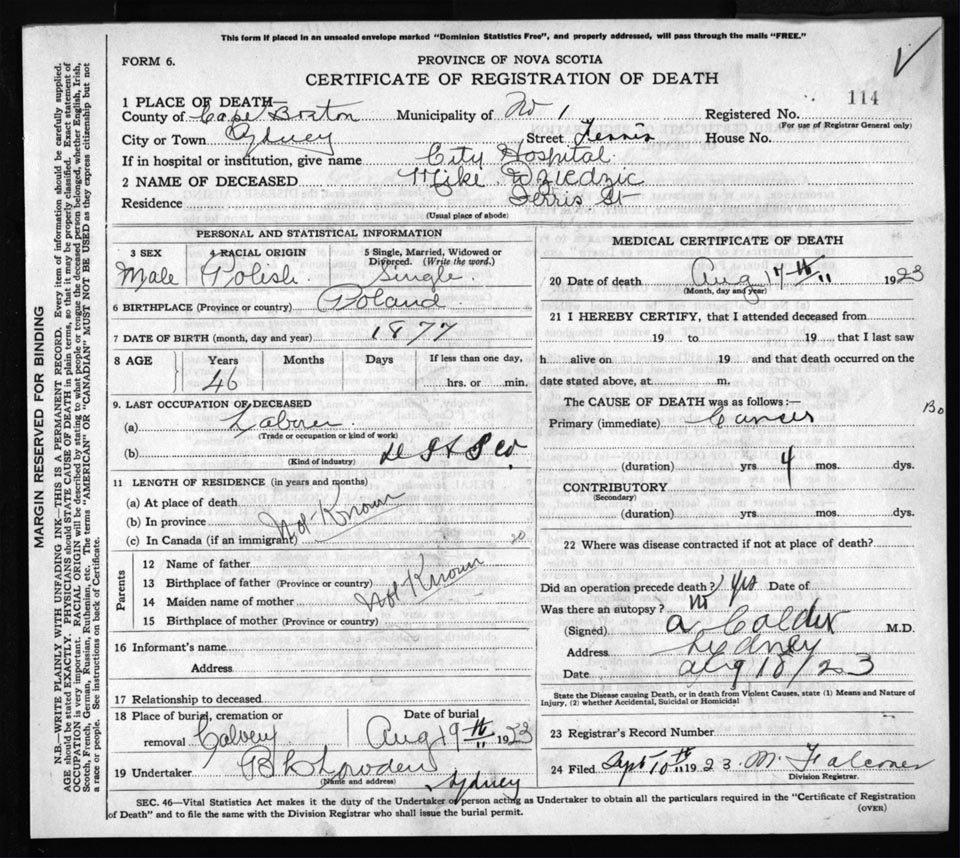 This form if placed in an unsealed envelope marked "Dominion Statistics Free", and properly addressed, will pass through the mails "FREE."
FORM 6.
PROVINCE OF NOVA SCOTIA
CERTIFICATE OF REGISTRATION OF DEATH
114
1 PLACE OF DEATH—
County of Cape Breton Municipality of No 1 Registered No.
(For use of Registrar General only)
City or Town Sydney Street Ferris House No.
If in hospital or institution, give name City Hospital
2 NAME OF DECEASED Mike Dziedzic
Residence Ferris St
(Usual place of abode)
PERSONAL AND STATISTICAL INFORMATION
3 SEX 4 RACIAL ORIGIN 5 Single, Married, Widowed or Divorced. (Write the word.)
Male Polish Single
6 BIRTHPLACE (Province or country) Poland
7 DATE OF BIRTH (month, day and year) 1877
8 AGE Years Months Days If less than one day,
46 hrs. or min.
9. LAST OCCUPATION OF DECEASED
(a) Laborer
(Trade or occupation or kind of work)
(b) D I & S Co.
(Kind of industry)
11 LENGTH OF RESIDENCE (in years and months)
(a) At place of death
(b) In province Not Known
(c) In Canada (if an immigrant)
Parents
12 Name of father
13 Birthplace of father (Province or country) Not Known
14 Maiden name of mother
15 Birthplace of mother (Province or country)
16 Informant's name
Address
17 Relationship to deceased
18 Place of burial, cremation or removal Date of burial
Calvery Aug 19th 1923
19 Undertaker
(Name and address)
Sydney
MEDICAL CERTIFICATE OF DEATH
20 Date of death Aug 17th 1923
(Month, day and year)
21 I HEREBY CERTIFY, that I attended deceased from
19 to 19 that I last saw
h alive on 19 and that death occurred on the
date stated above, at m.
The CAUSE OF DEATH was as follows:—
Primary (immediate) Cancer
(duration) yrs 4 mos. dys.
CONTRIBUTORY
(Secondary)
(duration) yrs. mos. dys.
22 Where was disease contracted if not at place of death?
Did an operation precede death? Yes Date of
Was there an autopsy? No
(Signed) A Calder M.D.
Address Sydney
Date Aug 18/23
State the Disease causing Death, or in death from Violent Causes, state (1) Means and Nature of Injury, (2) whether Accidental, Suicidal or Homicidal
23 Registrar's Record Number
24 Filed Sept 10th 1923. M. Falconer
Division Registrar.
SEC. 46—Vital Statistics Act makes it the duty of the Undertaker or person acting as Undertaker to obtain all the particulars required in the "Certificate of Registration
of Death" and to file the same with the Division Registrar who shall issue the burial permit. (OVER)
MARGIN RESERVED FOR BINDING
N.B.—WRITE PLAINLY WITH UNFADING INK—THIS IS A PERMANENT RECORD. Every item of information should be carefully supplied.
AGE should be stated EXACTLY. PHYSICIANS should STATE CAUSE OF DEATH in plain terms, so that it may be properly classified. Exact statement of
OCCUPATION is very important. RACIAL ORIGIN will be described by stating to what people or tongue the deceased person belonged, whether English, Irish,
Scotch, French, German, Russian, Ruthenian, etc. The terms "AMERICAN" or "CANADIAN" MUST NOT BE USED as they express citizenship but not
a race or people. See instructions on back of Certificate.